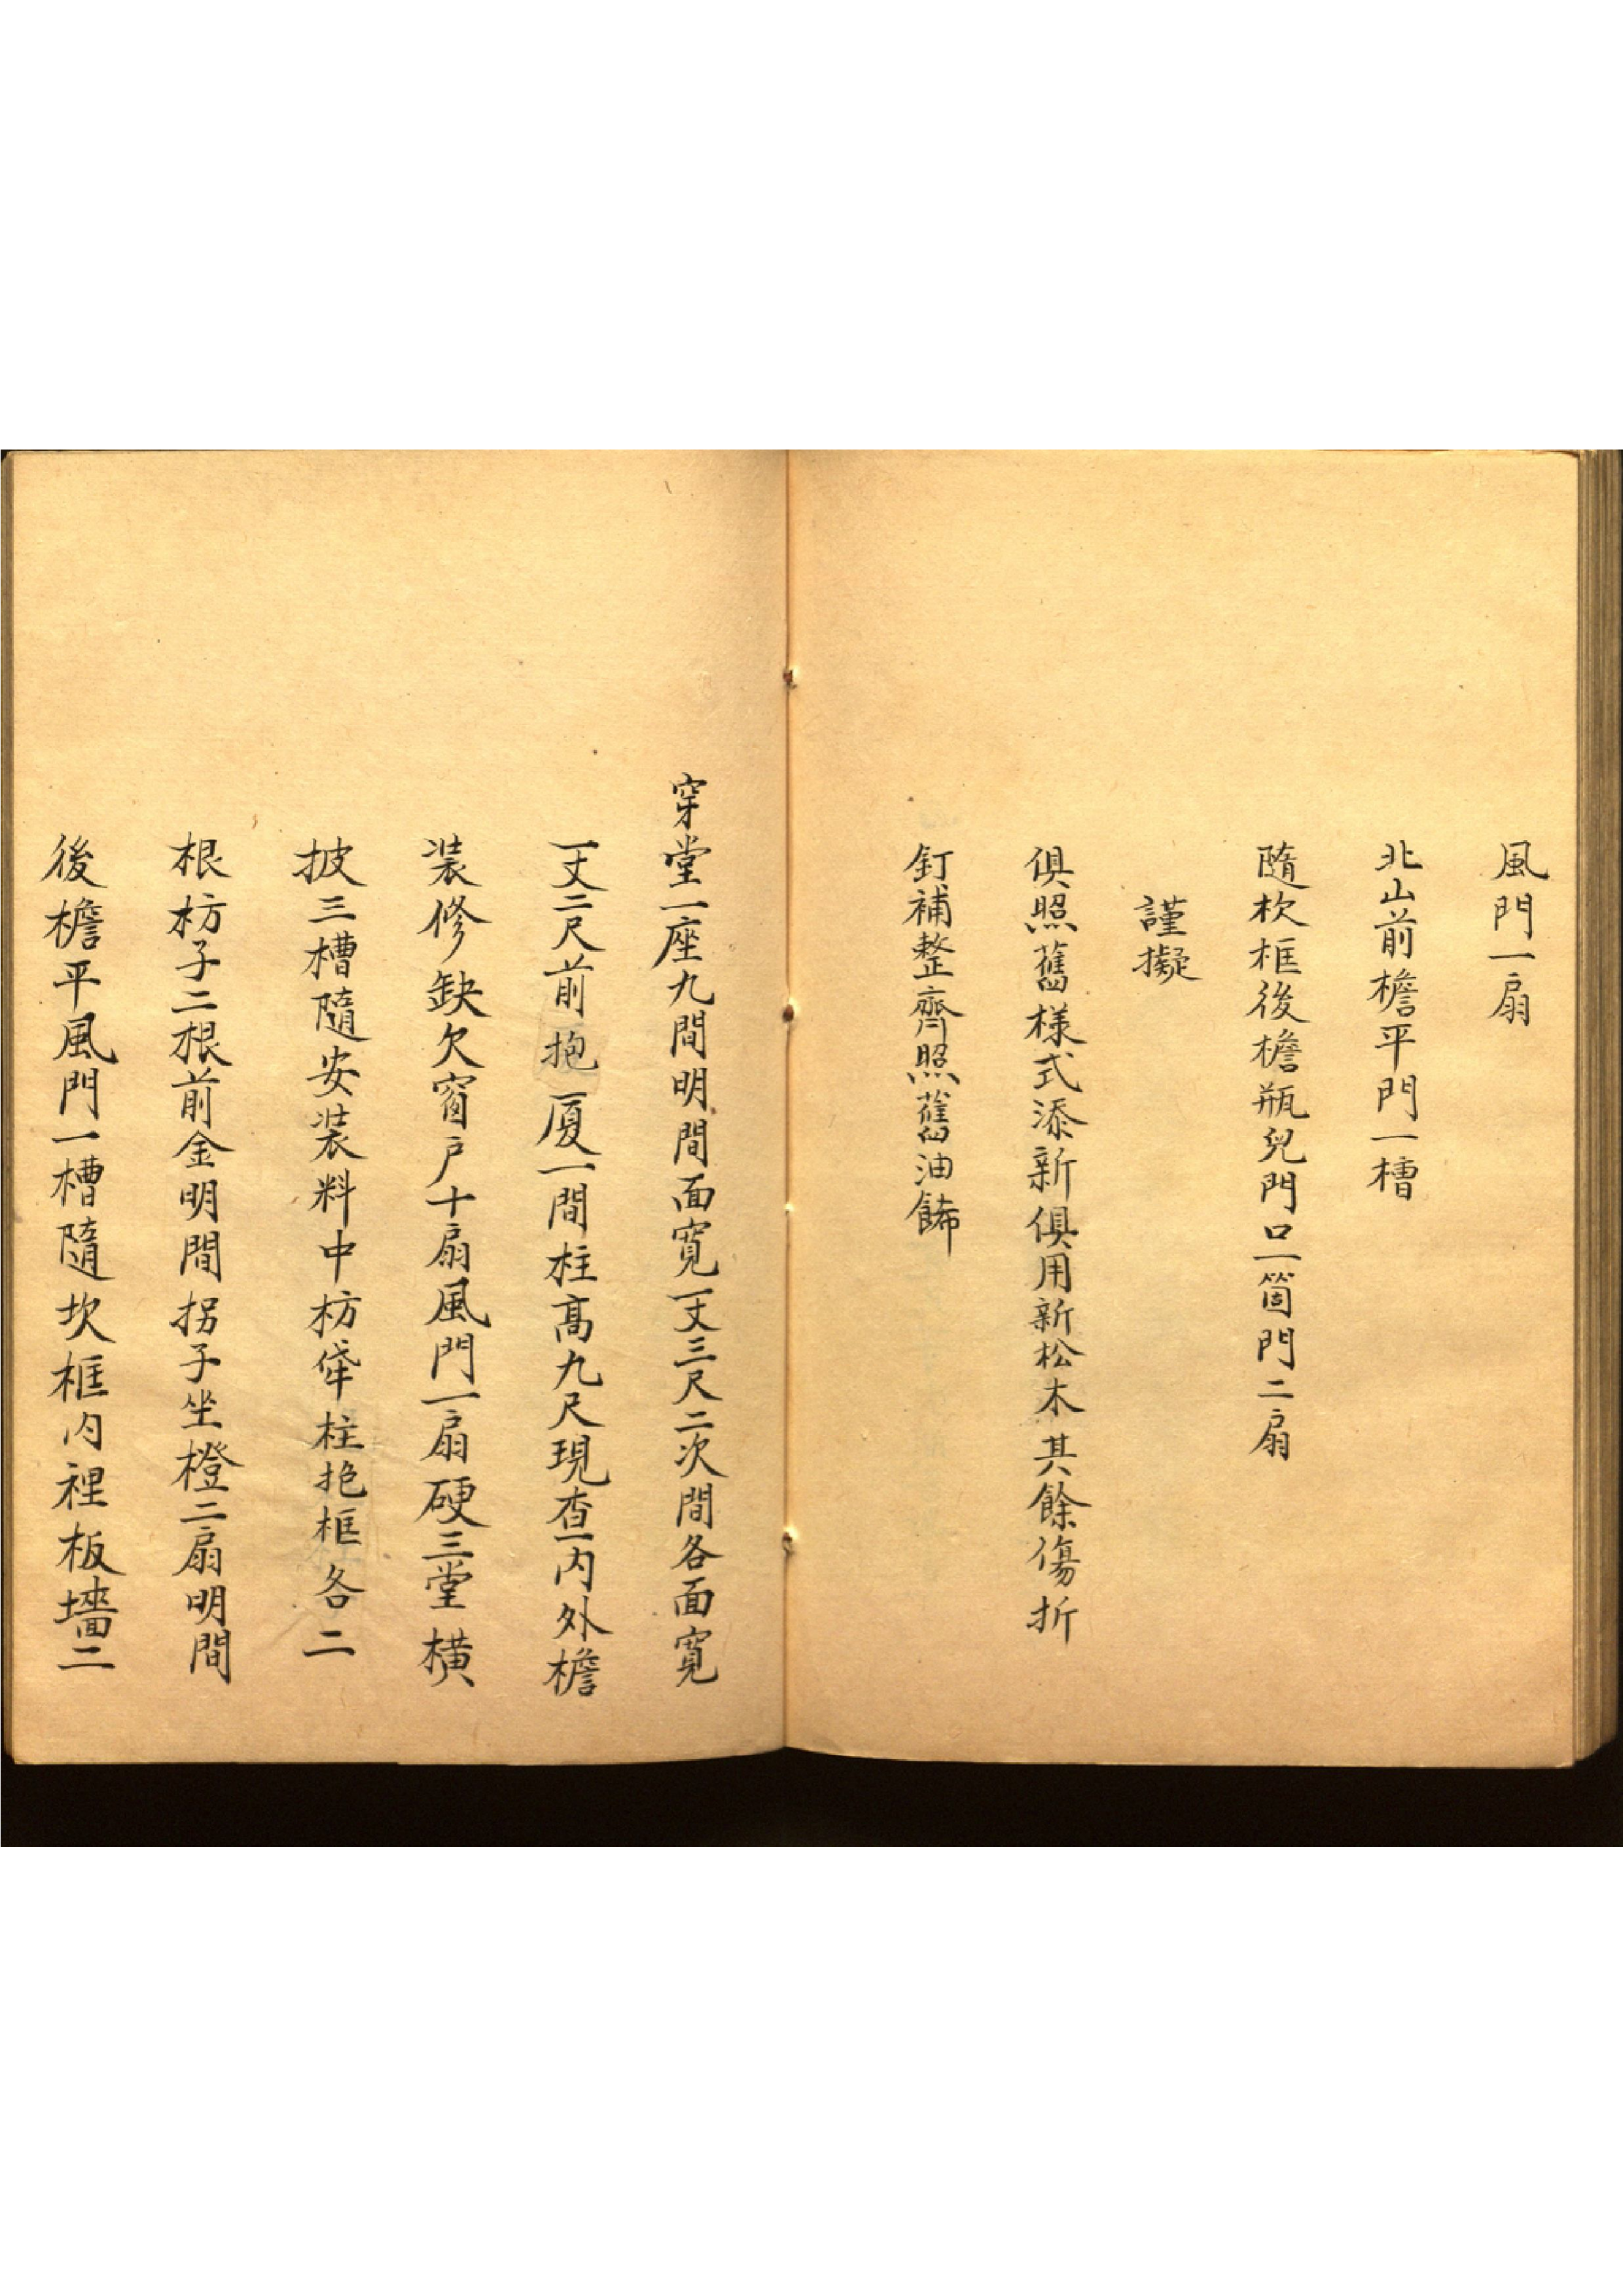 風門一扇
北山前檐平門一槽
隨杴框後檐瓶兒門口一箇門二扇
謹擬
俱照舊樣式添新俱用新松木其餘傷折
釘補整齊照舊油餙
穿堂一座九間明間面寬一丈三尺二次間各面寬
一丈二尺前抱厦一間柱高九尺現查內外檐
装修缺欠窗戶十扇風門一扇硬三堂橫
披三槽隨安装料中枋𠌯柱抱框各二
根枋子二根前金明間拐子坐櫈二扇明間
後檐平風門一槽隨坎框內裡板墻二